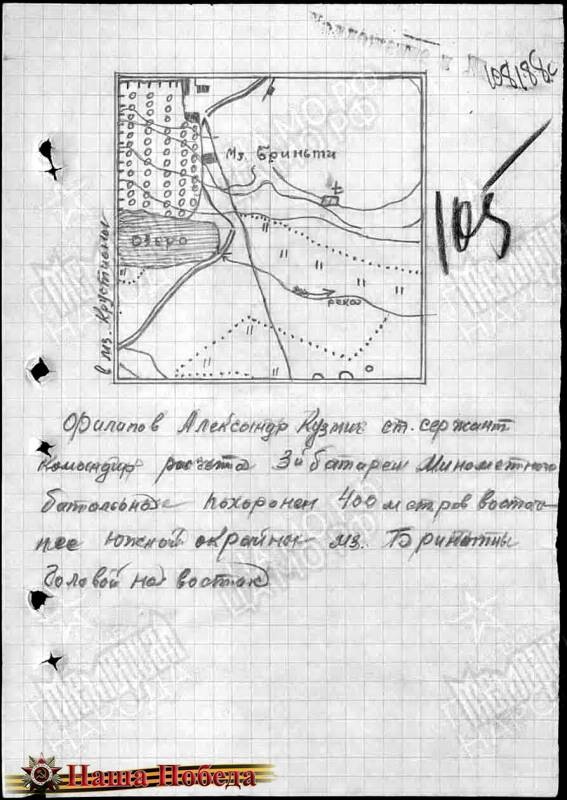 108188с
105
Мз. Бриньти
Озеро
река
в мз. Крустпоны
Филапов Александр Кузмич ст. сержант
командир расчета 3й батареи Минометного
батальона похоронен 400 метров восточ-
нее южной окрайны мз. Бриньтны
Головой на восток
ЦАМО.РФ
ЦАМО.РФ
Мемориал
НАРОДА
Наша Победа